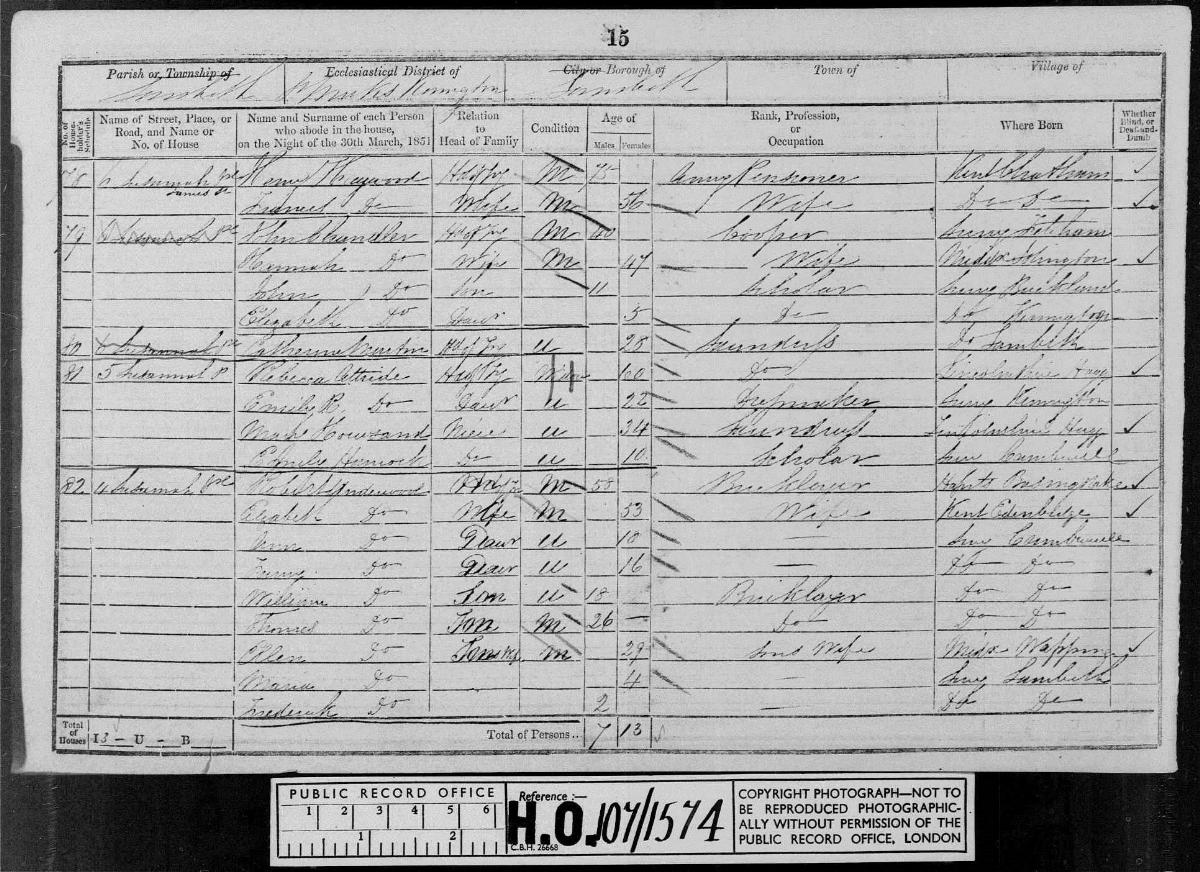 15
Parish or Township of Ecclesiastical District of City or Borough of Town of Village of
Lambeth St Marks Kennington Lambeth
No. of Householder's Schedule Name of Street, Place, or Road, and Name or No. of House Name and Surname of each Person who abode in the house, on the Night of the 30th March, 1851 Relation to Head of Family Condition Age of Males Females Rank, Profession, or Occupation Where Born Whether Blind, or Deaf-and-Dumb
78 6 James St Haywood M 75 Army Pensioner Kent Chatham
Do Wife M 36 Wife Do Do
79 John Chandler M 40 Cooper Surrey
Hannah Do Wife M 47 Wife Middx Islington
John Do Son 11 Scholar Surrey Buckland
Elizabeth Do Daur 5 Do Do
80 Catherine U 28 Laundress Do Lambeth
81 5 Rebecca Widow 60 Do Lincolnshire
Emily R. Do Daur U 22 Surrey Kennington
Niece U 24 Laundress Lincolnshire
Emily U 10 Scholar Surrey Camberwell
82 4 Robert Underwood M 58 Bricklayer Hants Basingstoke
Elizabeth Do Wife M 53 Wife Kent
Ann Do Daur U 10 — Surrey Camberwell
Fanny Do Daur U 16 — Do Do
William Do Son U 18 Bricklayer Do Do
Thomas Do Son M 26 — Do Do Do
Ellen Do Sons Wife M 29 Sons Wife Midx Wapping
Maria Do 4 — Surrey Lambeth
Frederick Do 2 — Do Do
Total of Houses I 3 – U – B Total of Persons.. 7 13
PUBLIC RECORD OFFICE
1 2 3 4 5 6
1 2
Reference :—
H.O. 107/1574
C.B.H. 26668
COPYRIGHT PHOTOGRAPH—NOT TO
BE REPRODUCED PHOTOGRAPHIC-
ALLY WITHOUT PERMISSION OF THE
PUBLIC RECORD OFFICE, LONDON